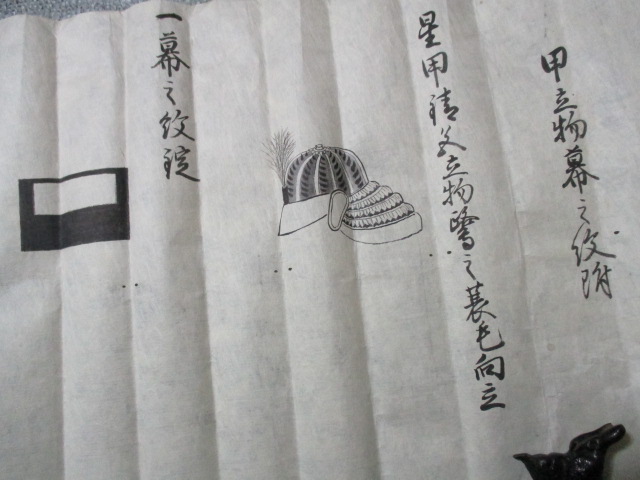 甲立物幕之紋附
星甲錆父立物鷺之蓑毛向立
一幕之紋錠